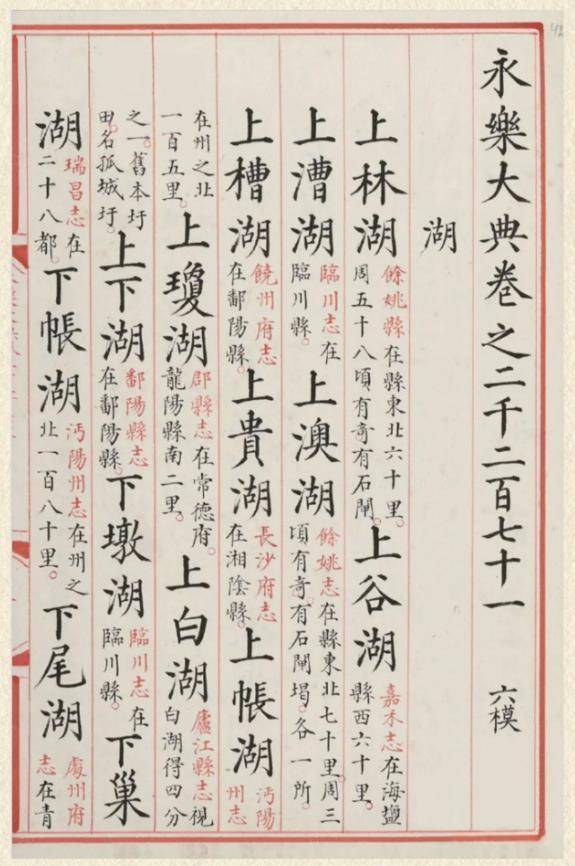 永樂大典卷之二千二百七十一 六模
湖
上林湖 餘姚縣在縣東北六十里。周五十八頃有竒有石閘。上谷湖 嘉禾志在海鹽縣西六十里。
上漕湖 臨川志在臨川縣。上澳湖 餘姚志在縣東北七十里。周三頃有竒。有石閘堨。各一所。
上槽湖 饒州府志在鄱陽縣。上貴湖 長沙府志在湘陰縣。上帳湖 沔陽州志
在州之北一百五里。上瓊湖 郡縣志在常德府。龍陽縣南二里。上白湖 廬江縣志視白湖得四分
之一。舊本圩田。名孤城圩。上下湖 鄱陽縣志在鄱陽縣。下墩湖 臨川志在臨川縣。下巢
湖 瑞昌志在二十八都。下帳湖 沔陽州志在州之北一百八十里。下尾湖 處州府志在青